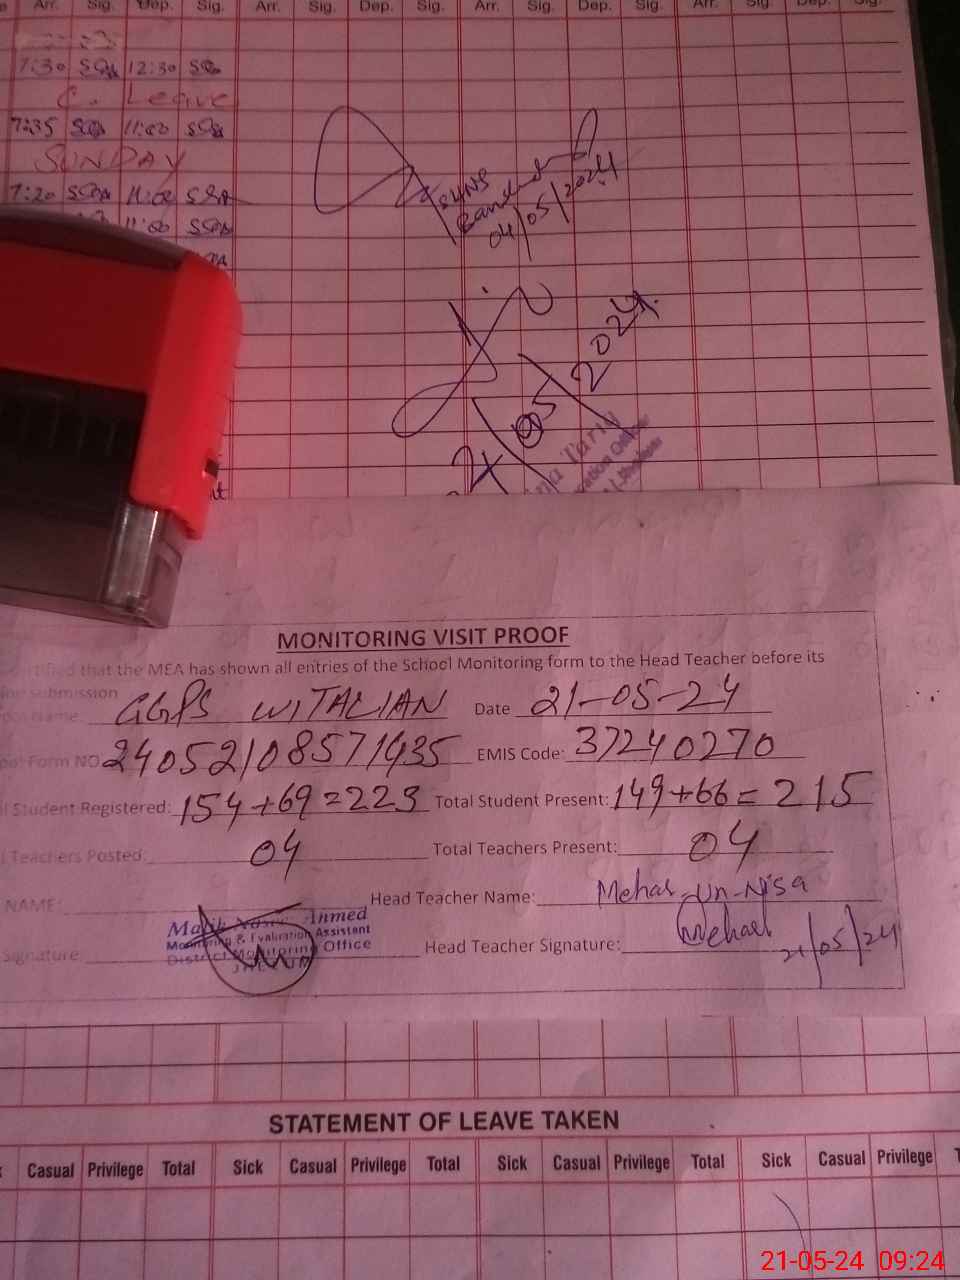 Arr. Sig. Dep. Sig. Arr. Sig. Dep. Sig. Arr. Sig. Dep. Sig. Arr. Sig. Dep. Sig.
7:30 12:30
C. Leave
7:35 11:00
SUNDAY
7:20 11:00
11:00
04/05/2024
05 2024
MONITORING VISIT PROOF
that the MEA has shown all entries of the School Monitoring form to the Head Teacher before its
submission
Name: GGPS WITALIAN Date 21-05-24
Form NO 24052108571435 EMIS Code: 37240270
Student Registered: 154+69=223 Total Student Present: 149+66=215
Teachers Posted: 04 Total Teachers Present: 04
NAME: Head Teacher Name: Mehar-Un-Nisa
Ahmed
Monitoring & Evaluation Assistant
District Monitoring Office
JHELUM
Signature: Head Teacher Signature: 21/05/24
STATEMENT OF LEAVE TAKEN
Casual Privilege Total Sick Casual Privilege Total Sick Casual Privilege Total Sick Casual Privilege
21-05-24 09:24